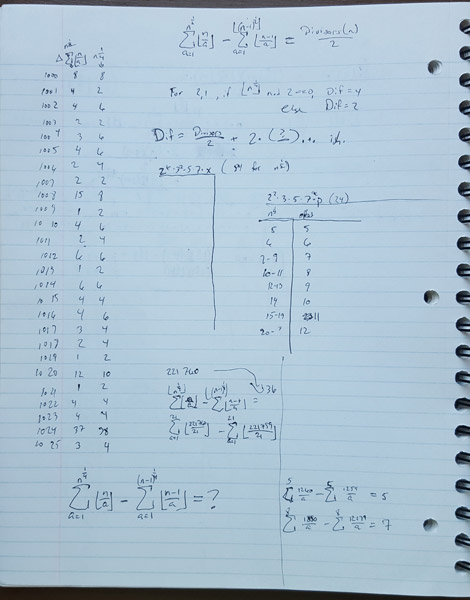 ∑_{a=1}^{n^{1/2}} ⌊n/a⌋ − ∑_{a=1}^{⌊(n−1)^{1/2}⌋} ⌊(n−1)/a⌋ = Divisors(n)/2
n^{1/4}
1000 8 8
1001 4 2
1002 4 6
1003 2 2
1004 3 6
1005 4 6
1006 2 4
1007 2 2
1008 15 8
1009 1 2
1010 4 6
1011 2 4
1012 6 6
1013 1 2
1014 6 6
1015 4 4
1016 4 6
1017 3 4
1018 2 4
1019 1 2
1020 12 10
1021 1 2
1022 4 4
1023 4 4
1024 37
1025 3 4
For 2,1, if ⌊n⌋ mod 2 = 0, Dif = 4
else Dif = 2
Dif = Divisors/2 + 2·(?/
2·3·5·7·x (54 for
2²·3·5·7·p (24)
5 5
6 6
7-9 7
10-11 8
12-13 9
14 10
15-19 11
20-? 12
221760
336
∑ − ∑ ⌊(n−1)/a⌋ =
∑_{a=1}^{21} − ∑_{a=1}^{21} ⌊221759/a⌋
∑_{a=1}^{n^{1/4}} ⌊n/a⌋ − ∑_{a=1}^{(n−1)^{1/4}} ⌊(n−1)/a⌋ = ?
∑^{5} 1260/a − ∑^{5} 1259/a = 5
∑ − ∑ = 7